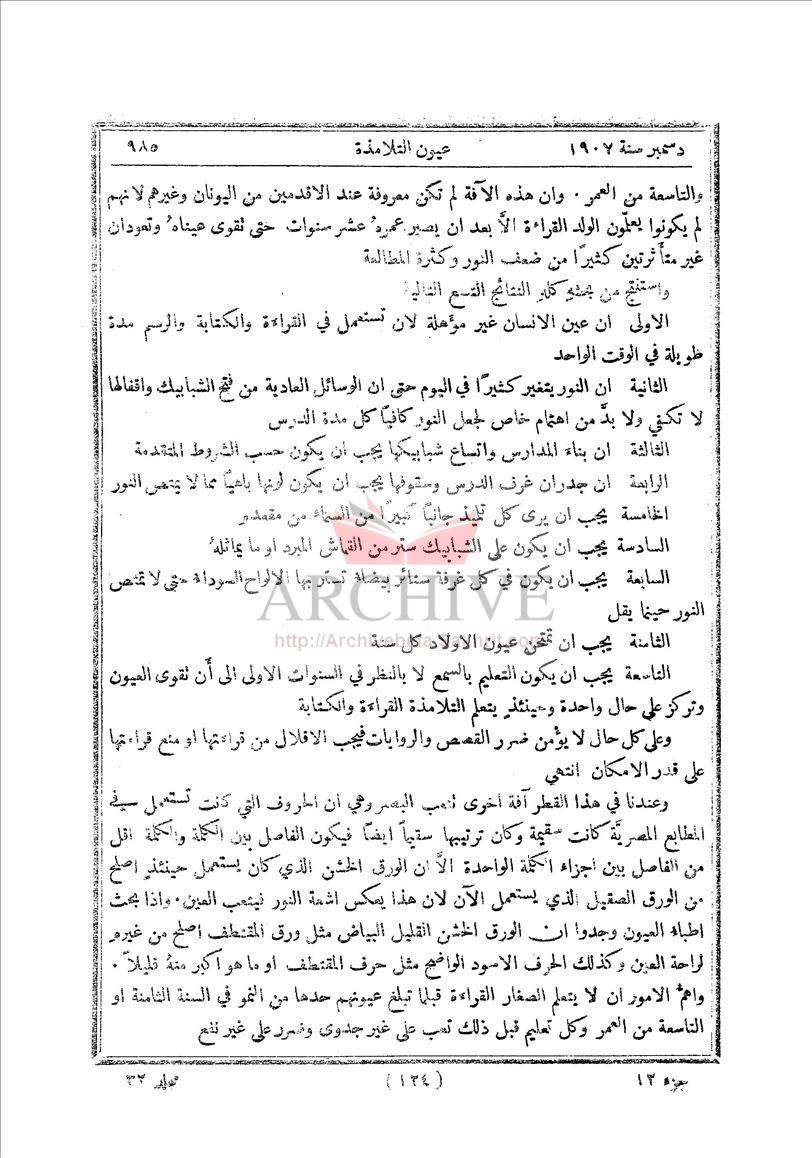 دسمبر سنة ١٩٠٧ عيون التلامذة ٩٨٥
والتاسعة من العمر . وان هذه الآفة لم تكن معروفة عند الاقدمين من اليونان وغيرهم لانهم
لم يكونوا يعلّمون الولد القراءة الاَّ بعد ان يصير عمرهُ عشر سنوات حتى تقوى عيناهُ وتعودان
غير متأثرتين كثيرًا من ضعف النور وكثرة المطالعة
واستنتج من بحثهِ كلهِ النتائج التسع التالية
الاولى ان عين الانسان غير مؤهلة لان تستعمل في القراءة والكتابة والرسم مدة
طويلة في الوقت الواحد
الثانية ان النور يتغير كثيرًا في اليوم حتى ان الوسائل العادية من فتح الشبابيك واقفالها
لا تكفي ولا بدَّ من اهتمام خاص لجعل النور كافيًا كل مدة الدرس
الثالثة ان بناء المدارس واتساع شبابيكها يجب ان يكون حسب الشروط المتقدمة
الرابعة ان جدران غرف الدرس وسقوفها يجب ان يكون لونها باهيًا مما لا يمتص النور
الخامسة يجب ان يرى كل تلميذ جانبًا كبيرًا من السماء من مقعدهِ
السادسة يجب ان يكون على الشبابيك ستر من القماش المبرد او ما يماثلهُ
السابعة يجب ان يكون في كل غرفة ستائر بيضاء تستر بها الالواح السوداء حتى لا تمتص
النور حينما يقل
ARCHIVE
الثامنة يجب ان تمتحن عيون الاولاد كل سنة
http://Archivebeta.Sakhrit.com
التاسعة يجب ان يكون التعليم بالسمع لا بالنظر في السنوات الاولى الى أن تقوى العيون
وتركز على حال واحدة وحينئذٍ يتعلم التلامذة القراءة والكتابة
وعلى كل حال لا يؤمن ضرر القصص والروايات فيجب الاقلال من قراءتها او منع قراءتها
على قدر الامكان انتهى
وعندنا في هذا القطر آفة اخرى تتعب البصر وهي ان الحروف التي كانت تستعمل في
المطابع المصريَّة كانت سقيمة وكان ترتيبها سقيماً ايضاً فيكون الفاصل بين الكلمة والكلمة اقل
من الفاصل بين اجزاء الكلمة الواحدة الاَّ ان الورق الخشن الذي كان يستعمل حينئذٍ اصلح
من الورق الصقيل الذي يستعمل الآن لان هذا يعكس اشعة النور فيتعب العين . واذا بحث
اطباء العيون وجدوا ان الورق الخشن القليل البياض مثل ورق المقتطف اصلح من غيرهِ
لراحة العين وكذلك الحرف الاسود الواضح مثل حرف المقتطف او ما هو اكبر منهُ قليلاً .
واهمُّ الامور ان لا يتعلم الصغار القراءة قبلما تبلغ عيونهم حدها من النمو في السنة الثامنة او
التاسعة من العمر وكل تعليم قبل ذلك تعب على غير جدوى وضرر على غير نفع
جزء ١٢ (١٢٤) مجلد ٣٢